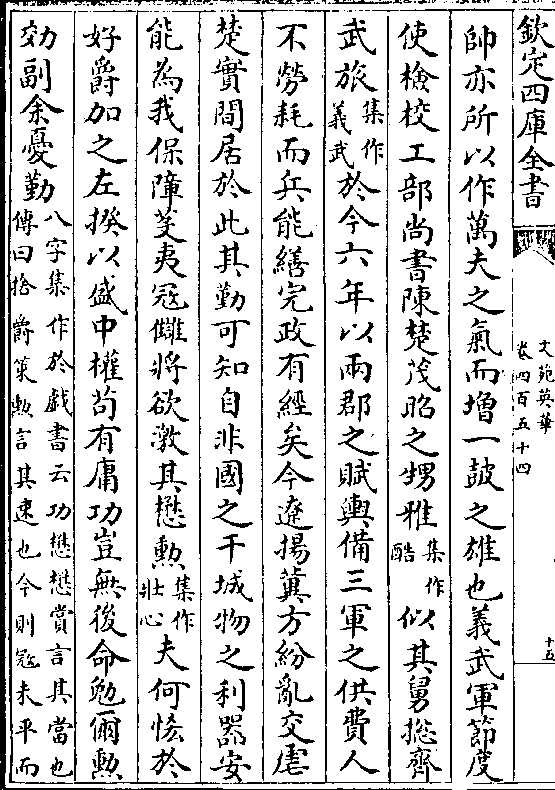 欽定四庫全書
文苑英華
卷四百五十四
十五
帥亦所以作萬夫之氣而增一鼓之雄也義武軍節度
使檢校工部尚書陳楚茂昭之甥雅集作酷似其舅摠齊
武旅集作義武於今六年以兩郡之賦輿備三軍之供費人
不勞耗而兵能繕完政有經矣今遼揚冀方紛亂交虐
楚實間居於此其勤可知自非國之干城物之利器安
能為我保障芟夷寇讎將欲激其懋勲集作壯心夫何恡於
好爵加之左揆以盛中權茍有庸功豈無後命勉爾勲
効副余憂勤八字集作於戲書云功懋懋賞言其當也傳曰捨爵策勲言其速也今則寇未平而